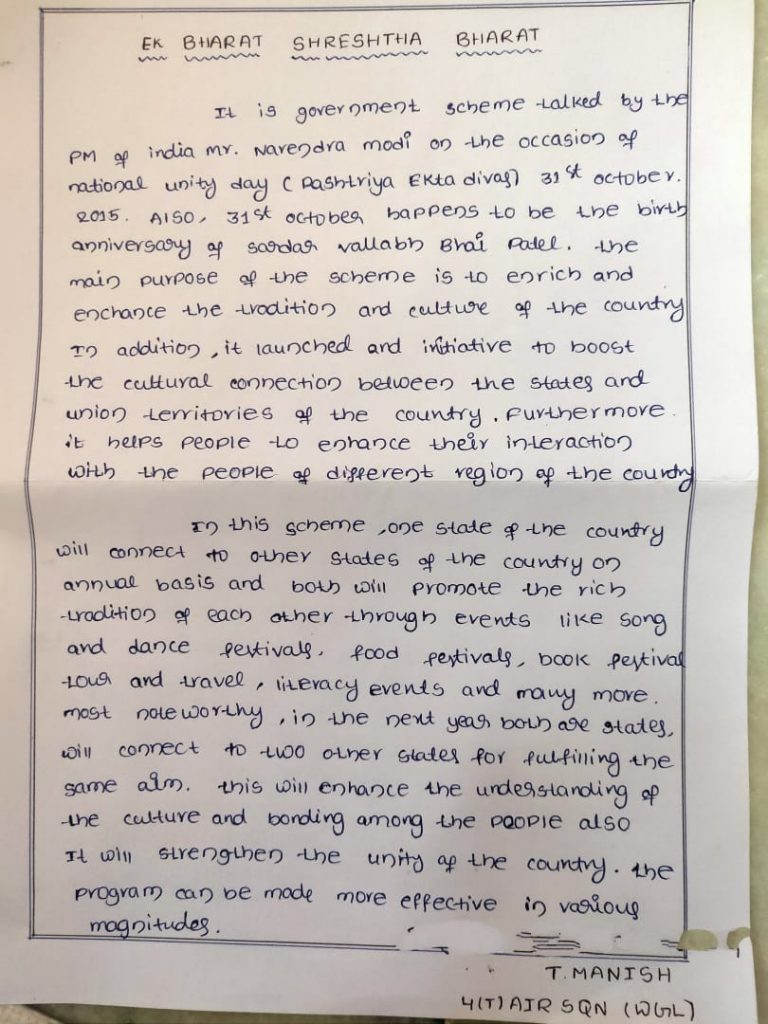 EK BHARAT SHRESHTHA BHARAT
It is government scheme talked by the
PM of india mr. Narendra modi on the occasion of
national unity day (Rashtriya Ekta divas) 31st october.
2015. Also, 31st october happens to be the birth
anniversary of sardar vallabh Bhai Patel. the
main purpose of the scheme is to enrich and
enchance the tradition and culture of the country
In addition, it launched and initiative to boost
the cultural connection between the states and
union territories of the country. Furthermore.
it helps people to enhance their interaction
with the people of different region of the country
In this scheme, one state of the country
will connect to other states of the country on
annual basis and both will promote the rich
tradition of each other through events like song
and dance festivals, food festivals, book festival
tour and travel, literacy events and many more.
most noteworthy, in the next year both are states,
will connect to two other states for fulfilling the
same aim. this will enhance the understanding of
the culture and bonding among the people also
It will strengthen the unity of the country. the
program can be made more effective in various
magnitudes.
T. MANISH
4(T) AIR SQN (WGL)